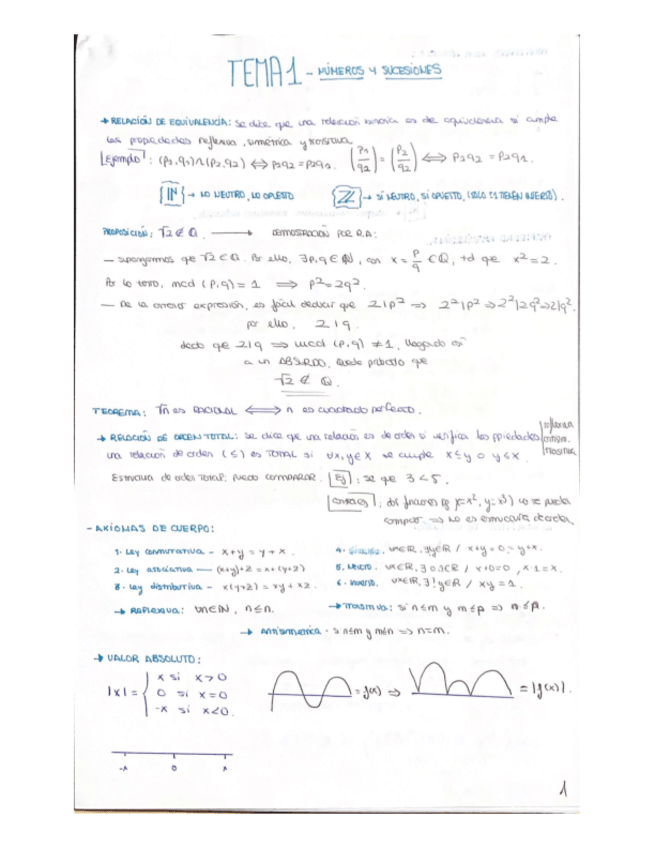 TEMA 1 - NÚMEROS Y SUCESIONES
→ RELACIÓN DE EQUIVALENCIA: se dice que una relación binaria es de equivalencia si cumple
las propiedades reflexiva, simétrica y transitiva.
Ejemplo: (p₁,q₁) ∩ (p₂,q₂) ⟺ p₁q₂ = p₂q₁. (p₁/q₁) = (p₂/q₂) ⟺ p₁q₂ = p₂q₁.
{ℕ} → NO NEUTRO, NO OPUESTO {ℤ} → SÍ NEUTRO, SÍ OPUESTO, (SOLO ±1 TIENEN INVERSO).
PROPOSICIÓN: √2 ∉ ℚ. ⟶ DEMOSTRACIÓN POR R.A:
- Supongamos que √2 ∈ ℚ. Por ello, ∃p,q ∈ ℕ, con x = p/q ∈ ℚ, tq que x² = 2.
Por lo tanto, mcd (p,q) = 1 ⟹ p² = 2q².
- De la anterior expresión, es fácil deducir que 2|p² ⟹ 2²|p² ⟹ 2²|2q² ⟹ 2|q².
por ello, 2|q.
dado que 2|q ⟹ mcd (p,q) ≠ 1, llegando así
a un ABSURDO. Queda probado que
√2 ∉ ℚ.
TEOREMA: √n es RACIONAL ⟺ n es cuadrado perfecto.
→ RELACIÓN DE ORDEN TOTAL: se dice que una relación es de orden si verifica las ppiedades reflexiva
una relación de orden (≤) es TOTAL si ∀x,y∈X se cumple x≤y o y≤x.
Estructura de orden total: puedo COMPARAR. Ej: sé que 3 < 5.
dos funciones y=x², y=x³ no se puede
comparar ⟹ no es estructura de orden.
- AXIOMAS DE CUERPO:
1. Ley conmutativa - x+y = y+x. 4. ∀x∈ℝ, ∃y∈ℝ / x+y=0=y+x.
2. Ley asociativa — (x+y)+z = x+(y+z) 5. Neutro. ∀x∈ℝ, ∃ 0,1∈ℝ / x+0=0, x·1=x.
3. Ley distributiva - x(y+z) = xy + xz. 6. Inverso. ∀x∈ℝ, ∃!y∈ℝ / xy = 1.
→ REFLEXIVA: ∀n∈ℕ, n≤n. → TRANSITIVA: si n≤m y m≤p ⟹ n≤p.
→ Antisimétrica - si n≤m y m≤n ⟹ n=m.
→ VALOR ABSOLUTO:
|x| = { x si x>0
0 si x=0
-x si x<0.
= f(x) ⟹ = |f(x)|.
-x 0 x
1